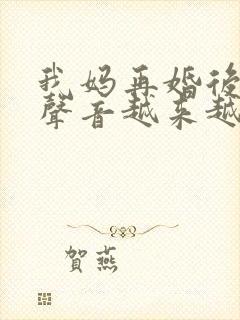 我妈再婚後
聲音越来越
賀燕